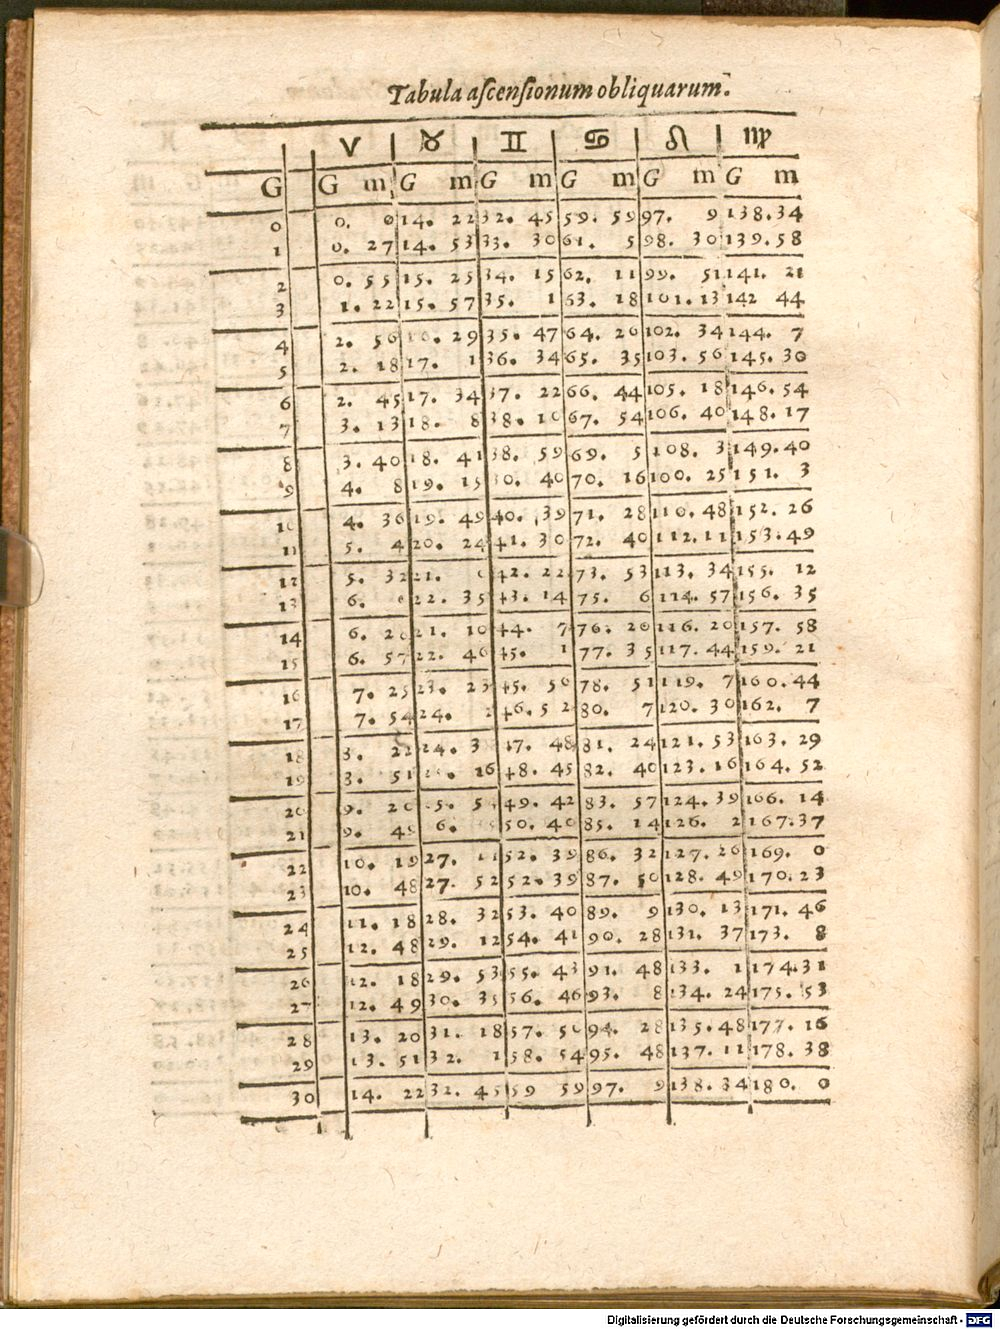 Tabula ascensionum obliquarum.
♈ ♉ ♊ ♋ ♌ ♍
G G m G m G m G m G m G m
0 0. 0 14. 22 32. 45 59. 59 97. 9 138.34
1 0. 27 14. 53 33. 30 61. 5 98. 30 139.58
2 0. 55 15. 25 34. 15 62. 11 99. 51 141. 21
3 1. 22 15. 57 35. 1 63. 18 101. 13 142 44
4 2. 56 16. 29 35. 47 64. 26 102. 34 144. 7
5 2. 18 17. 1 36. 34 65. 35 103. 56 145. 30
6 2. 45 17. 34 37. 22 66. 44 105. 18 146. 54
7 3. 13 18. 8 38. 10 67. 54 106. 40 148. 17
8 3. 40 18. 41 38. 59 69. 5 108. 3 149.40
9 4. 8 19. 15 30. 40 70. 16 100. 25 151. 3
10 4. 36 19. 49 40. 39 71. 28 110. 48 152. 26
11 5. 4 20. 24 41. 30 72. 40 112. 11 153.49
12 5. 32 21. 42. 22 73. 53 113. 34 155. 12
13 6. 22. 35 43. 14 75. 6 114. 57 156. 35
14 6. 28 21. 10 44. 7 76. 20 116. 20 157. 58
15 6. 57 22. 46 45. 1 77. 35 117. 44 159. 21
16 7. 25 23. 23 45. 56 78. 51 119. 7 160. 44
17 7. 54 24. 46. 52 80. 7 120. 30 162. 7
18 8. 22 24. 3 47. 48 81. 24 121. 53 163. 29
19 8. 51 16 48. 45 82. 40 123. 16 164. 52
20 9. 20 5. 5 49. 42 83. 57 124. 39 166. 14
21 9. 49 6. 50. 40 85. 14 126. 2 167.37
22 10. 19 27. 11 52. 39 86. 32 127. 26 169. 0
23 10. 48 27. 52 52. 39 87. 50 128. 49 170. 23
24 11. 18 28. 32 53. 40 89. 9 130. 13 171. 46
25 12. 48 29. 12 54. 41 90. 28 131. 37 173. 8
26 12. 18 29. 53 55. 43 91. 48 133. 1 174.31
27 12. 49 30. 35 56. 46 93. 8 134. 24 175. 53
28 13. 20 31. 18 57. 50 94. 28 135. 48 177. 16
29 13. 51 32. 1 58. 54 95. 48 137. 11 178. 38
30 14. 22 32. 45 59 59 97. 9 138. 34 180. 0
Digitalisierung gefördert durch die Deutsche Forschungsgemeinschaft - DFG